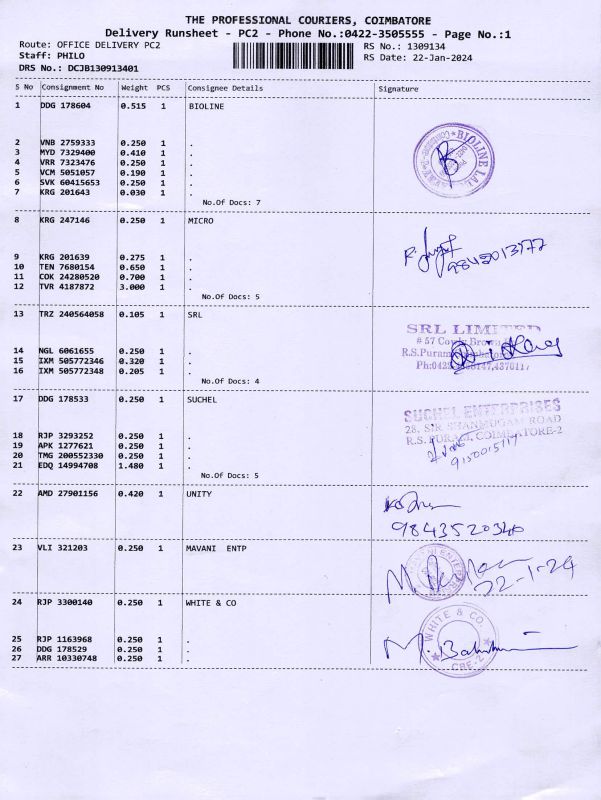 THE PROFESSIONAL COURIERS, COIMBATORE
Delivery Runsheet - PC2 - Phone No.:0422-3505555 - Page No.:1
Route: OFFICE DELIVERY PC2 RS No.: 1309134
Staff: PHILO RS Date: 22-Jan-2024
DRS No.: DCJB130913401
S No Consignment No Weight PCS Consignee Details Signature
1 DDG 178604 0.515 1 BIOLINE
BIOLINE LAB
2 VNB 2759333 0.250 1 .
3 MYD 7329400 0.410 1 .
4 VRR 7323476 0.250 1 .
5 VCM 5051057 0.190 1 .
6 SVK 60415653 0.250 1 .
7 KRG 201643 0.030 1 .
No.Of Docs: 7
8 KRG 247146 0.250 1 MICRO
9 KRG 201639 0.275 1 .
10 TEN 7680154 0.650 1 .
11 COK 24280520 0.700 1 .
12 TVR 4187872 3.000 1 .
No.Of Docs: 5
13 TRZ 240564058 0.105 1 SRL
SRL LIMITED
# 57
R.S.Puram
14 NGL 6061655 0.250 1 .
15 IXM 505772346 0.320 1 .
16 IXM 505772348 0.205 1 .
No.Of Docs: 4
17 DDG 178533 0.250 1 SUCHEL
SUCHEL ENTERPRISES
28, SIR SHANMUGAM ROAD
R.S. PURAM, COIMBATORE-2
18 RJP 3293252 0.250 1 .
19 APK 1277621 0.250 1 .
20 TMG 200552330 0.250 1 .
21 EDQ 14994708 1.480 1 .
No.Of Docs: 5
22 AMD 27901156 0.420 1 UNITY
9843520340
23 VLI 321203 0.250 1 MAVANI ENTP
22-1-24
24 RJP 3300140 0.250 1 WHITE & CO
WHITE & CO.
CBE-2
25 RJP 1163968 0.250 1 .
26 DDG 178529 0.250 1 .
27 ARR 10330748 0.250 1 .